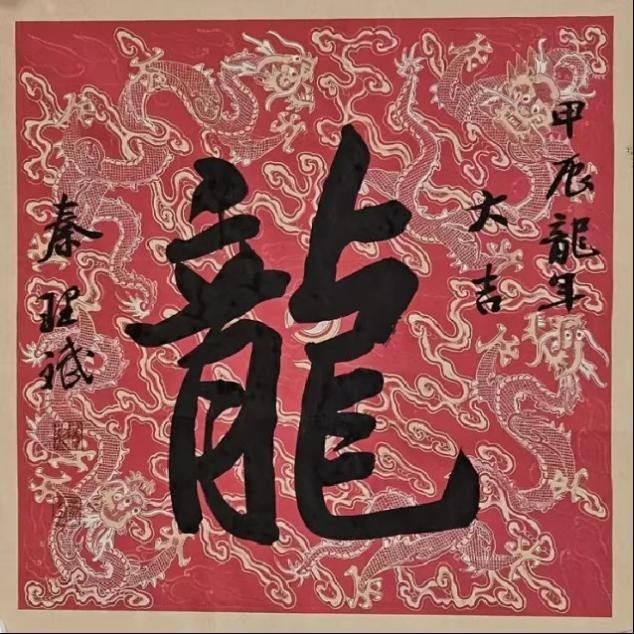 甲辰龍年
大吉
龍
秦理斌